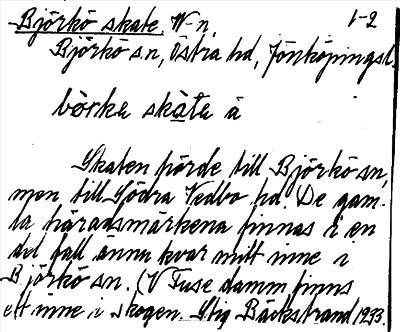 Björkö skate. N-n. 1-2
Björkö sn, Östra hd, Jönköpings l.
börke skäte å
Skaten hörde till Björkö sn,
men till Södra Vedbo hd. De gam-
la häradsmärkena finnas i en
del fall ännu kvar mitt inne i
Björkö sn. (V Fuse damm finns
ett inne i skogen. Stig Bäckstrand 1933.